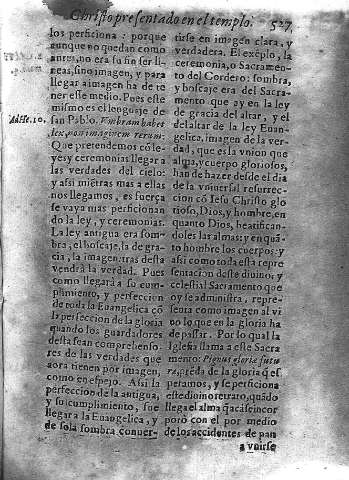 Christo presentado en el templo. 527
los perficiona: porque
aunque no quedan como
antes, no era su fin ser li-
neas, sino imagen, y para
llegar a imagen ha de te-
ner este medio. Pues este
mismo es el lenguaje de
san Pablo. Vmbram habet
lex, non imaginem rerum:
Ad He. 10.
Que pretendemos cõ le-
yes y ceremonias llegar a
las verdades del cielo:
y assi miẽtras mas a ellas
nos llegamos, es fuerça
se vaya mas perficionan
do la ley, y ceremonias.
La ley antigua era som-
bra, el bosceaje, la de gra-
cia, la imagen: tras desta
vendrà la verdad. Pues
como llegarà a su cum-
plimiento, y perfeccion
de toda la Euangelica cõ
la perfeccion de la gloria
quando los guardadores
desta sean comprehenso-
res de las verdades que
aora tienen por imagen,
como en espejo. Assi la
perfeccion de la antigua,
y su cumplimiento, fue
llegar a la Euangelica, y
de sola sombra conuer-
tirse en imagen clara, y
verdadera. El exẽplo, la
ceremonia, o Sacramen-
to del Cordero: sombra,
y boscaje era del Sacra-
mento que ay en la ley
de gracia del altar, y el
del altar de la ley Euan-
gelica, imagen de la ver-
dad, que es la vnion que
alma, y cuerpo gloriosos,
han de hazer desde el dia
de la vniuersal resurrec-
cion cõ Iesu Christo glo
rioso, Dios, y hombre, en
quanto Dios, beatifican-
doles las almas: y en quã-
to hombre los cuerpos: y
assi como toda esta repre
sentacion deste diuino, y
celestial Sacramento que
oy se administra, repre-
senta como imagen al vi
uo lo que en la gloria ha
de passar. Por lo qual la
Iglesia llama a este Sacra
mento: Pignus gloriæ futu
ræ, prẽda de la gloria q̃ es
peramos, y se perficiona
este diuino retrato, quãdo
llega el alma q̃ acà se incor
porò con el por medio
de los accidentes de pan
a vnirse